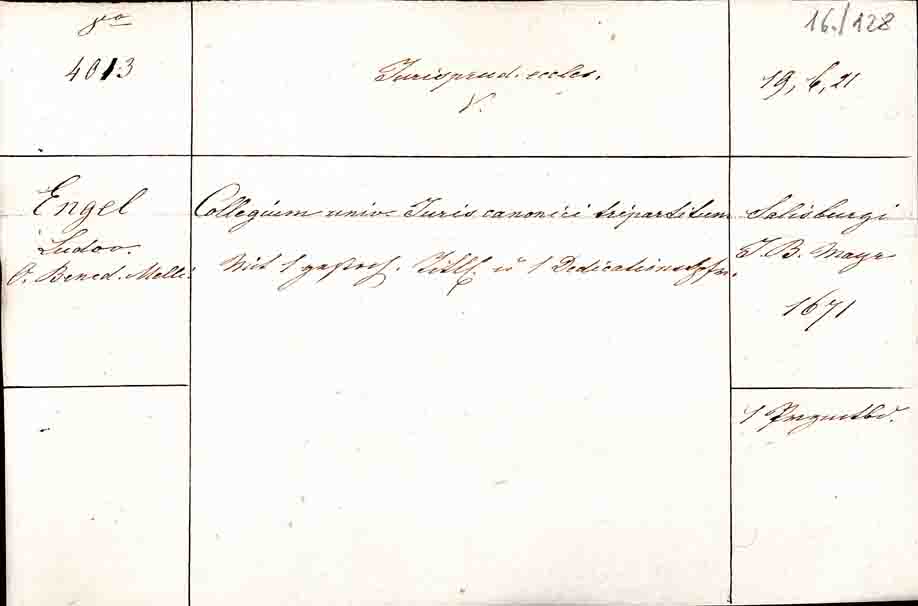 8vo
4013
Jurisprud. eccles.
V.
16./128
19, 6, 21
Engel
Ludov.
O. Bened. Melli.
Collegium univ. Juris canonici tripartitum
Mit 1 gestoch. Titlk. u 1 Dedicationskpfr.
Salisburgi
J. B. Mayr
1671
1 Prgmtbd.